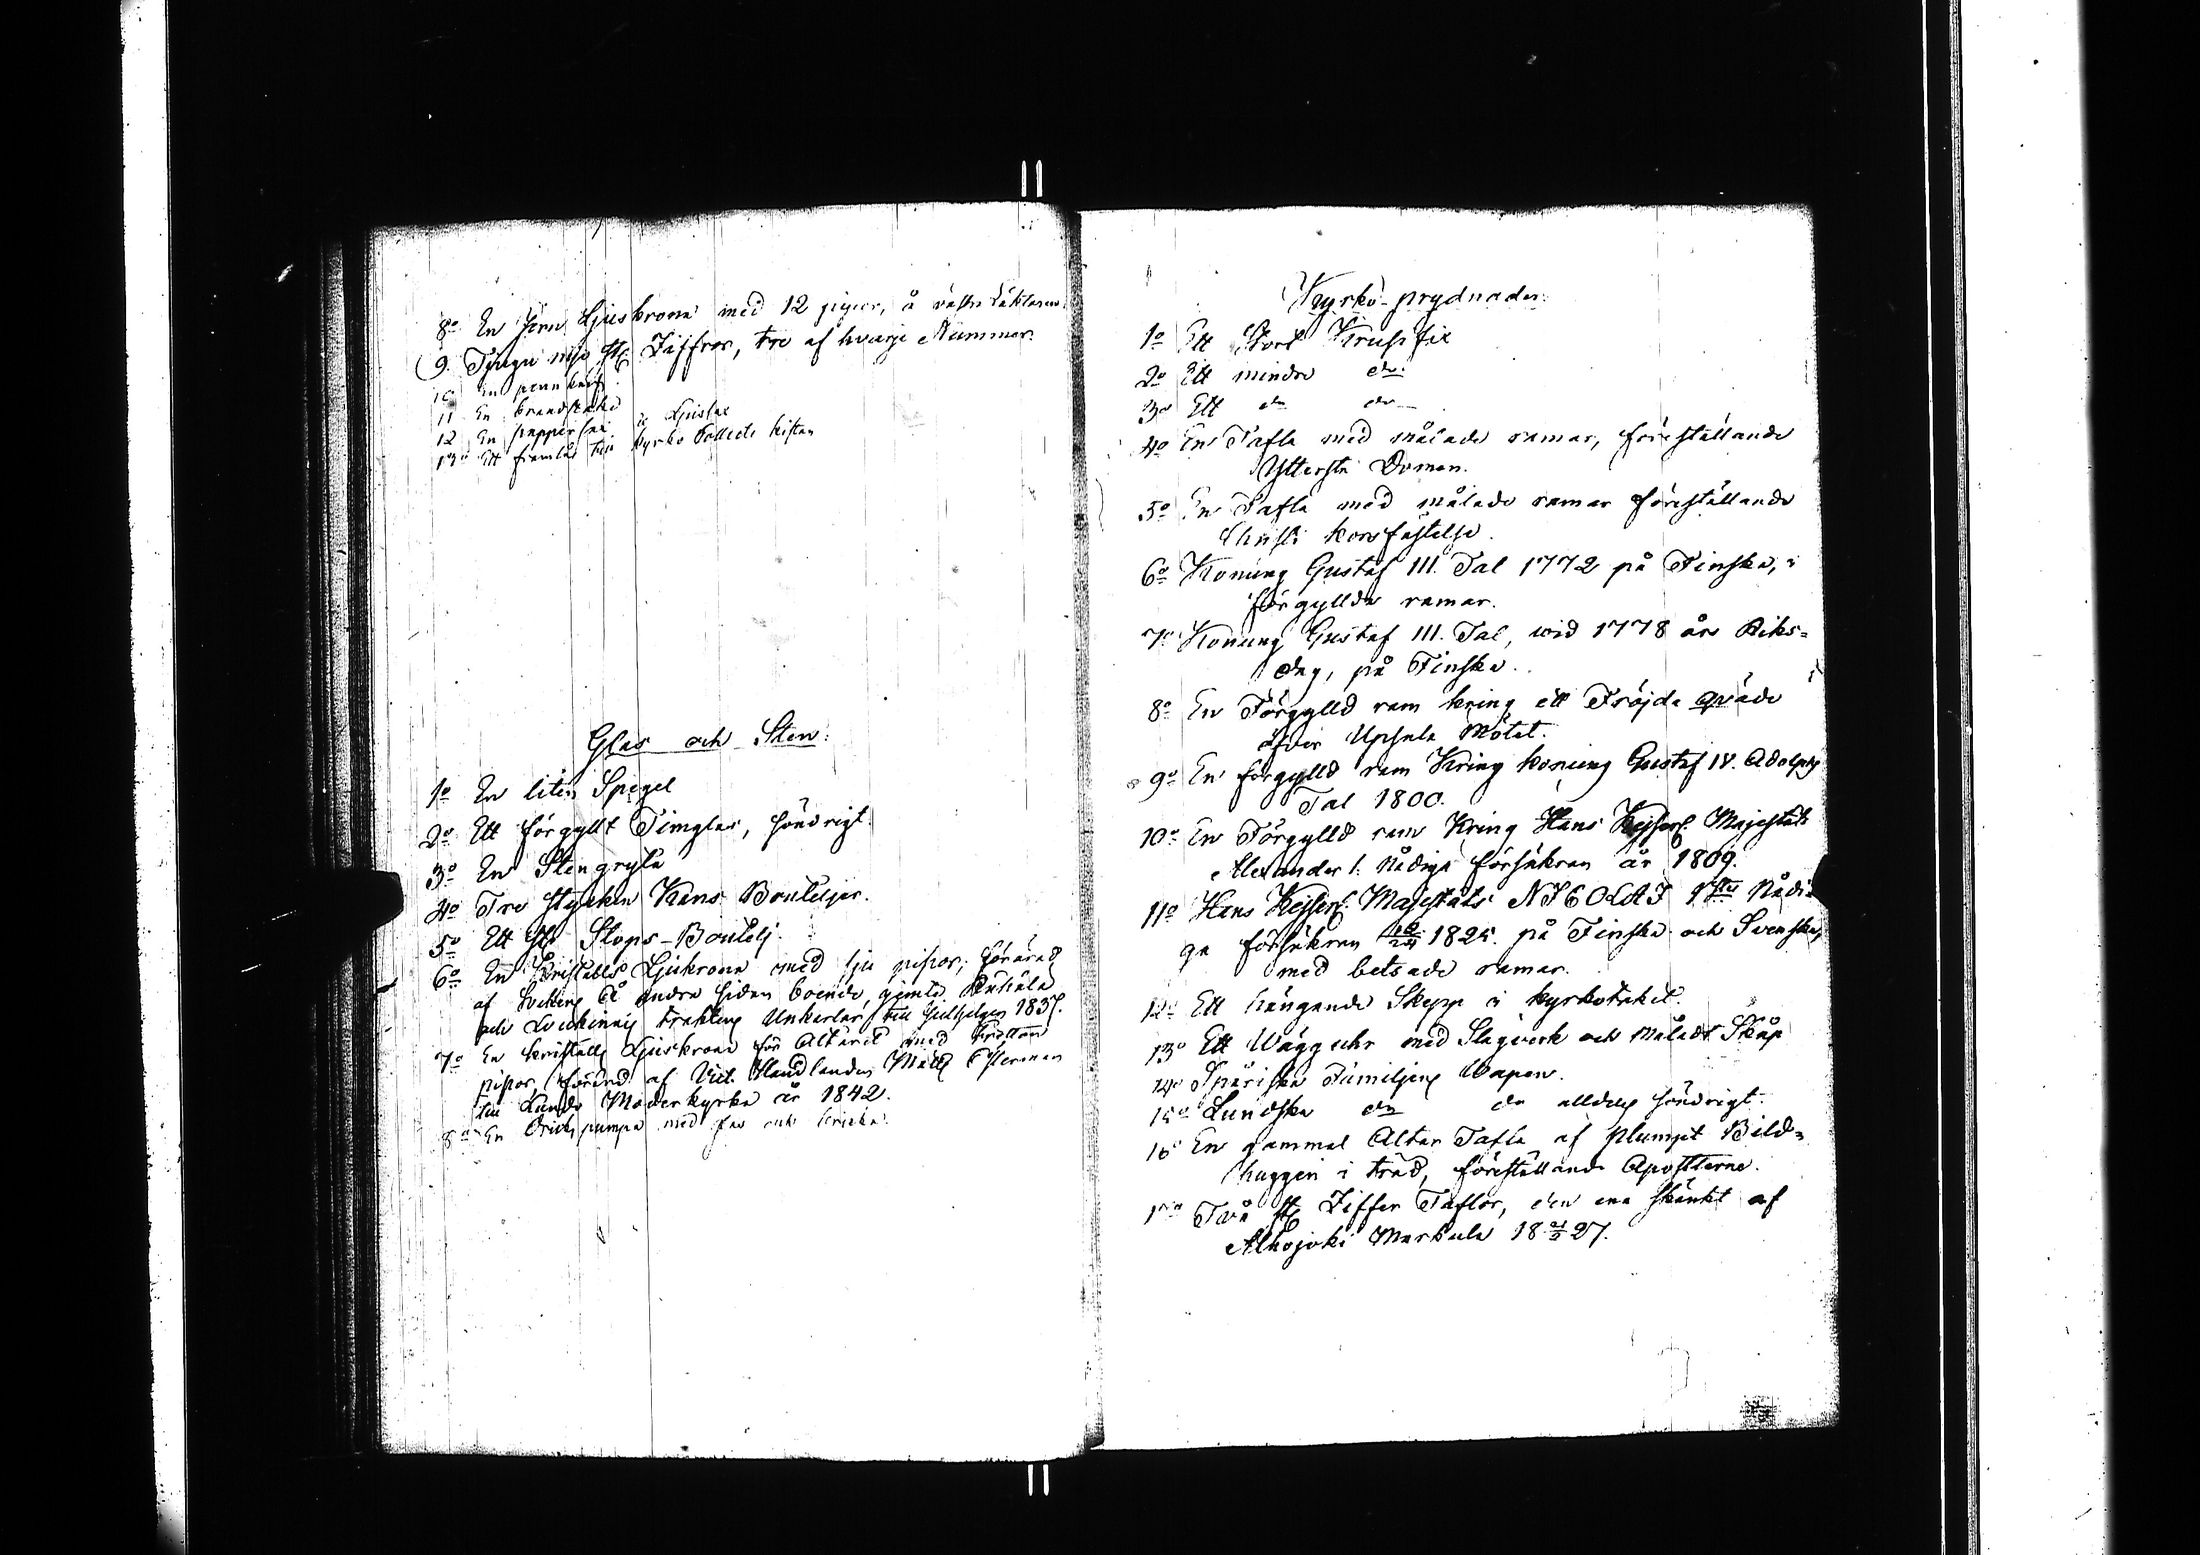 8o En Jern Ljuskrona med 12 piper, å västra Läktaren.
9. Tjugu nijo st. Ziffror, tre af hvarje Nummer.
10 En pennknif
11 En brandstake
12 En papperssax à Ljussax
13o Ett framlås till Kyrko Collects kistan
Glas och Sten.
1o En liten Spegel
2o Ett förgyllt Timglas, söndrigt.
3o En Stengryta
4o Tre stycken Kans Bouteljer.
5o Ett st. Stops-Boutelj.
6o En Kristalls Ljuskrona med sju pipor, förärad
af Socknens å andra sidan boende, jemte
och trakters Unkarlar till Julhelgen 1837.
7o En kristalls Ljuskrona för Altaret med tretton
pipor, förärad af Vict. Handlanden Matts Österman
till Lundo Moderkyrka år 1842.
8o En pumpa med fas och
Kyrko-prydnader.
1o Ett Stort Krusifix
2o Ett mindre do.
3o Ett do do
4o En Tafla med målade ramar, föreställande
Ytterste Domen.
5o En Tafla med målade ramar föreställande
Christi korsfästelse.
6o Konung Gustaf III. Tal 1772 på Finska, i
förgyllda ramar.
7o Konung Gustaf III. Tal, wid 1778 års Riks=
dag, på Finska.
8o En Förgylld ram kring ett Fröjde qväde
öfver Upsala Mötet.
9o En förgylld ram Kring konung Gustaf IV. Adolphs
Tal 1800.
10o En Förgylld ram Kring Hans Kejserl. Majestäts
Alexander 1. Nådiga försäkran år 1809.
11o Hans Kejserl. Majestäts NICOLAI 1stes Nådi=
ga försäkran 12/24 1825. på Finska och Svenska,
med betsade ramar.
12o Ett hängande Skepp i kyrkotaket.
13o Ett Wägguhr med Slagverk och måladt Skåp
14o Spåriska Familjens Wapen.
15o Lundska do do alldeles söndrigt.
16 En gammal Altar Tafla af plumpt Bild=
huggeri i träd, föreställande Apostlerne.
17o Två st. Ziffer Taflor, den ena skänkt af
Alhojoki Markula 18 27.